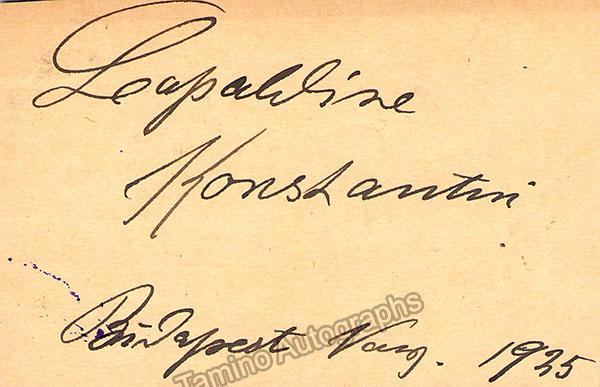 Leopoldine
Konstantin
Budapest Nov. 1925
Tamino Autographs